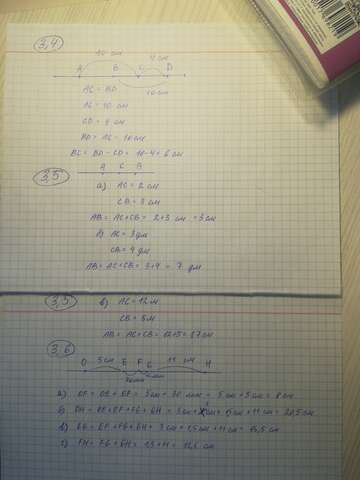 3.4
10 см
4 см
A B C D
10 см
AC = BD
AC = 10 см
CD = 4 см
BD = AC = 10 см
BC = BD - CD = 10-4 = 6 см
3.5
A C B
а) AC = 2 см
CB = 3 см
AB = AC+CB = 2+3 см =
б) AC = 3 дм
CB = 4 дм
AB = AC+CB = 3+4 = 7 дм
3.5
в) AC = 12 м
CB = 5 м
AB = AC+CB = 12+5 = 17 см
3.6
5 см 11 см
E F G H
а) = 5 см + 30 мм = 5 см + 3 см = 8 см
б) = 20,5 см
в) EH = EF+FG+GH = 3 см + 1,5 см + 11 см = 15,5 см
г) FH = FG + GH =